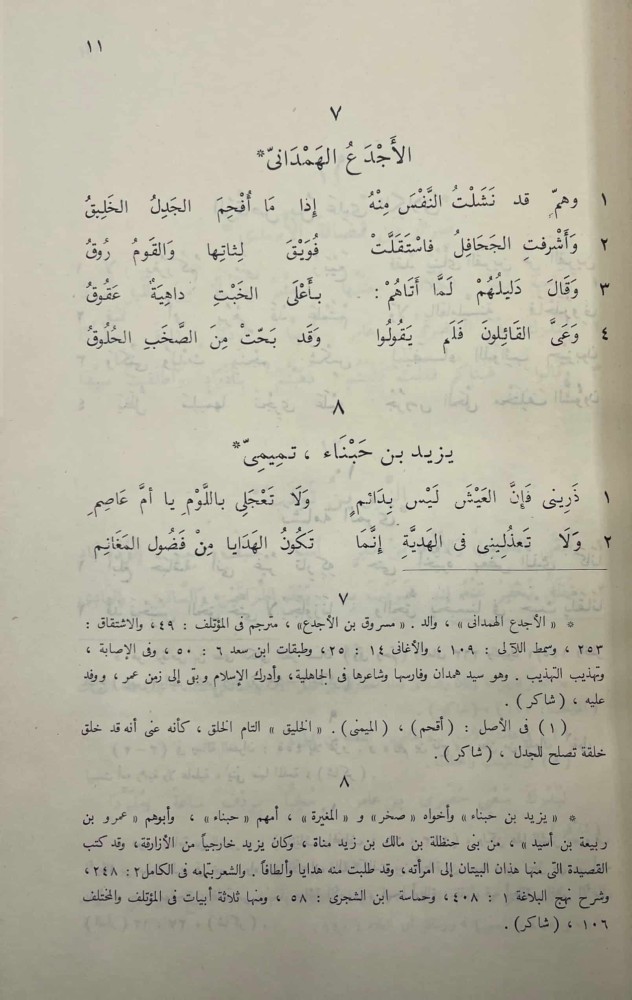 ١١
٧
الأَجْدَعُ الهَمْدَانىّ*
١ وهمّ قد نَشَلْتُ النَّفْسَ مِنْهُ إِذا مَا أُفْحِمَ الجَدِلُ الخَلِيقُ
٢ وَأَشْرفتِ الجَحَافِلُ فاسْتَقَلَّتْ فُوَيْقَ لِثاتِها وَالقَومُ رُوقُ
٣ وَقَالَ دَلِيلُهُمْ لَمَّا أَتَاهُمْ : بِأَعْلَى الخَبْتِ داهِيَةٌ عَقُوقُ
٤ وَعَىَّ القَائِلونَ فَلَم يَقُولُوا وَقَد بَحّتْ مِنَ الصَّخَبِ الحُلُوقُ
٨
يزيد بن حَبْنَاء ، تمِيمِىّ*
١ ذَرِينى فَإِنَّ العَيْشَ لَيْسَ بِدَائمٍ وَلَا تَعْجَلِى باللَّوْمِ يا أمَّ عَاصِمِ
٢ وَلَا تَعذُلِينِى فى الهَدِيَّةِ إِنَّمَا تَكُونُ الهَدَايا مِنْ فَضُول المَغَانِم
٧
* « الأجدع الهمدانى » ، والد . « مسروق بن الأجدع» ، مترجم فى المؤتلف : ٤٩، والاشتقاق :
٢٥٣ ، وسمط اللآلى : ١٠٩ ، والأغانى ١٤ : ٢٥، وطبقات ابن سعد ٦ : ٥٠ ، وفى الإصابة ،
وتهذيب التهذيب . وهو سيد همدان وفارسها وشاعرها فى الجاهلية، وأدرك الإسلام وبقى إلى زمن عمر ، ووفد
عليه ، ( شاكر ) .
( ١ ) فى الأصل : ( أقحم ) ، ( الميمنى ) . « الخليق » التام الخلق ، كأنه عنى أنه قد خلق
خلقة تصلح للجدل ، ( شاكر ) .
٨
* « يزيد بن حبناء » وأخواه « صخر» و « المغيرة » ، أمهم « حبناء » ، وأبوهم « عمرو بن
ربيعة بن أسيد » ، من بنى حنظلة بن مالك بن زيد مناة ، وكان يزيد خارجياً من الأزارقة، وقد كتب
القصيدة التى منها هذان البيتان إلى امرأته، وقد طلبت منه هدايا وألطافاً . والشعر بتمامه فى الكامل ٢ : ٢٤٨ ،
وشرح نهج البلاغة ١ : ٤٠٨، وحماسة ابن الشجرى : ٥٨ ، ومنها ثلاثة أبيات فى المؤتلف والمختلف
١٠٦ ، ( شاكر) .